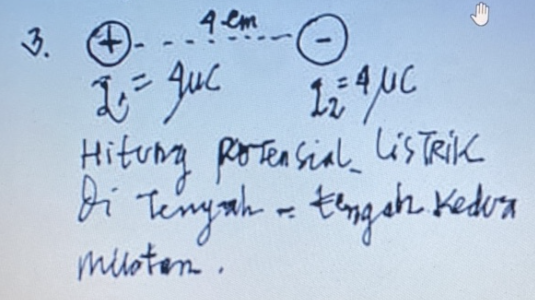 3. + 4 cm -
q1 = 4μC q2 = 4μC
Hitung Potensial Listrik
Di Tengah - tengah Kedua
muatan.